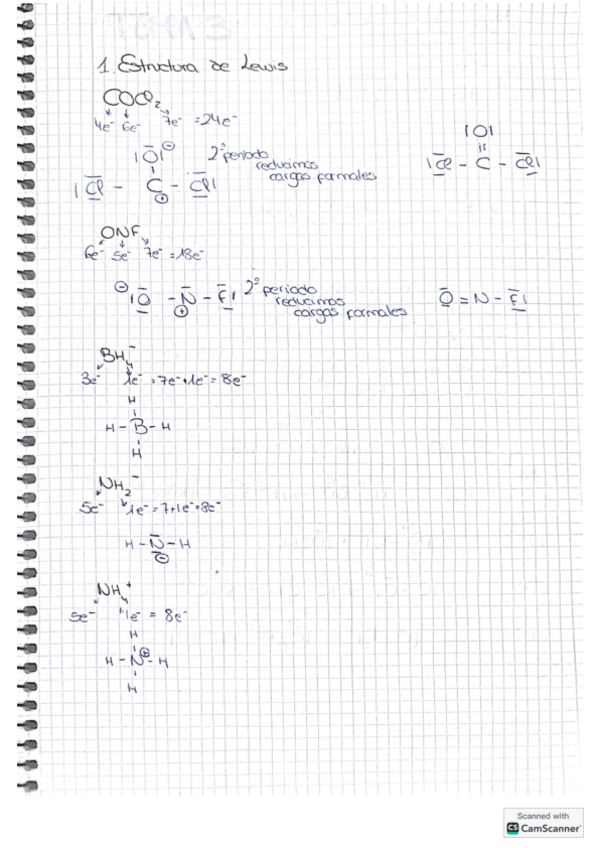 1. Estructura de Lewis
COCl₂
4e⁻ 6e⁻ 7e⁻ = 24e⁻
|O̅|⊖
|C̅l̲ - C⊕ - C̅l̲|
2º periodo
reducimos
cargas formales
|O|
=
|C̅l̲ - C - C̅l̲|
ONF
6e⁻ 5e⁻ 7e⁻ = 18e⁻
⊖|O̲̅ - N̅⊕ - F̲̅|
2º periodo
reducimos
cargas formales
O̲̅ = N - F̲̅|
BH₄⁻
3e⁻ 1e⁻ = 7e⁻ + 1e⁻ = 8e⁻
H
H - B - H
H
NH₂⁻
5e⁻ 1e⁻ = 7 + 1e⁻ = 8e⁻
H - N̲̅ - H
⊖
NH₄⁺
5e⁻ 1e⁻ = 8e⁻
H
H - N⊕ - H
H
Scanned with
CS CamScanner